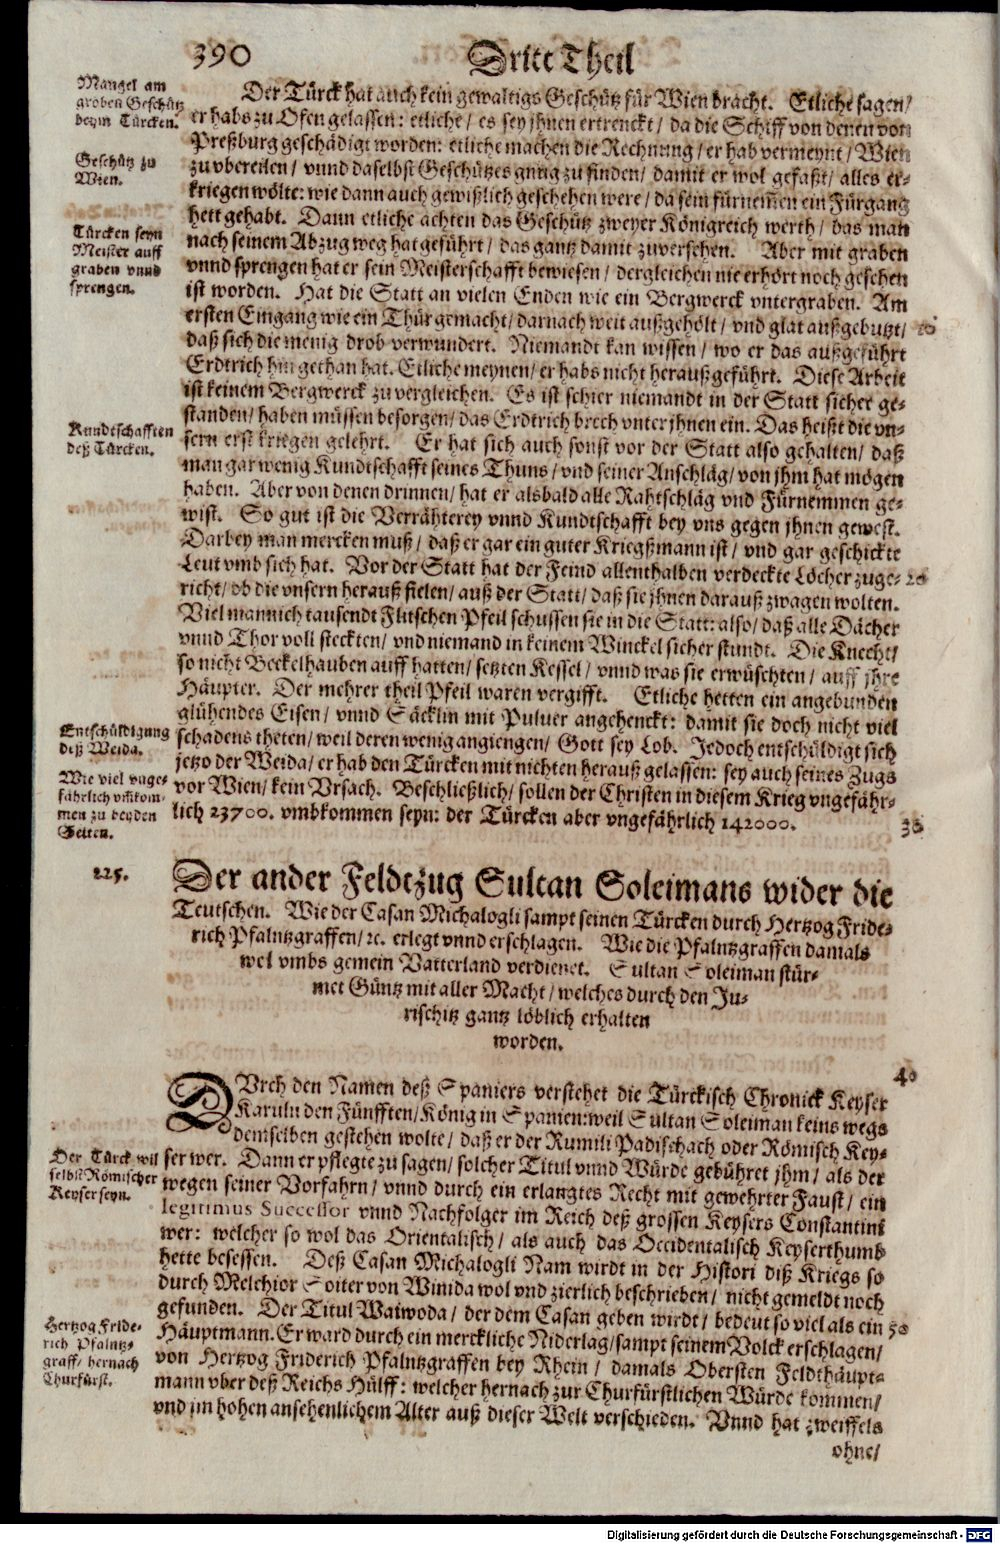 390
Dritt Theil
Mangel am
groben Geschütz
beym Türcken.
Der Türck hat auch kein gewaltigs Geschütz für Wien bracht. Etliche sagen/
er habs zu Ofen gelassen: etliche/ es sey jhnen ertrenckt/ da die Schiff von denen von
Preßburg geschädigt worden: etliche machen die Rechnung/ er hab vermeynt/ Wien
Geschütz zu
Wien.
zu vbereilen/ vnnd daselbst Geschützes gnug zu finden/ damit er wol gefaßt/ alles er-
kriegen wölte: wie dann auch gewißlich geschehen were/ da sein fürnemen ein Fürgang
hett gehabt. Dann etliche achten das Geschütz zweyer Königreich werth/ das man
nach seinem Abzug weg hat geführt/ das gantz damit zuversehen. Aber mit graben
Türcken seyn
Meister auff
graben vnnd
sprengen.
vnnd sprengen hat er sein Meisterschafft bewiesen/ dergleichen nie erhört noch gesehen
ist worden. Hat die Statt an vielen Enden wie ein Bergwerck vntergraben. Am
ersten Eingang wie ein Thür gemacht/ darnach weit außgehölt/ vnd glat außgebutzt/
daß sich die menig drob verwundert. Niemandt kan wissen/ wo er das außgeführt
Erdtrich hin gethan hat. Etliche meynen/ er habs nicht heraußgeführt. Diese Arbeit
ist keinem Bergwerck zu vergleichen. Es ist schier niemandt in der Statt sicher ge-
standen/ haben müssen besorgen/ das Erdtrich brech vnter jhnen ein. Das heißt die vn-
Kundtschafften
deß Türcken.
sern erst kriegen gelehrt. Er hat sich auch sonst vor der Statt also gehalten/ daß
man gar wenig Kundtschafft seines Thuns/ vnd seiner Anschläg/ von jhm hat mögen
haben. Aber von denen drinnen/ hat er alsbald alle Rahtschläg vnd Fürnemmen ge-
wist. So gut ist die Verrähterey vnnd Kundtschafft bey vns gegen jhnen gewest.
Darbey man mercken muß/ daß er gar ein guter Kriegßmann ist/ vnd gar geschickte
Leut vmb sich hat. Vor der Statt hat der Feind allenthalben verdeckte Löcher zuge-
richt/ ob die vnsern herauß fielen/ auß der Statt/ daß sie jhnen darauß zwagen wolten.
Viel mannich tausendt Flitschen Pfeil schussen sie in die Statt: also/ daß alle Dächer
vnnd Thor voll steckten/ vnd niemand in keinem Winckel sicher stundt. Die Knecht/
so nicht Beckelhauben auff hatten/ setzten Kessel/ vnnd was sie erwüschten/ auff jhre
Häupter. Der mehrer theil Pfeil waren vergifft. Etliche hetten ein angebunden
glühendes Eisen/ vnnd Säcklin mit Puluer angehenckt: damit sie doch nicht viel
Entschüldigung
diß Weida.
schadens theten/ weil deren wenig angiengen/ Gott sey Lob. Jedoch entschüldigt sich
jetzo der Weida/ er hab den Türcken mit nichten herauß gelassen: sey auch seines Zugs
Wie viel vnge-
fährlich vmkom-
men zu beyden
Seiten.
vor Wien/ kein Vrsach. Beschließlich/ sollen der Christen in diesem Krieg vngefähr-
lich 23700. vmbkommen seyn: der Türcken aber vngefährlich 142000.
30
225.
Der ander Feldtzug Sultan Soleimans wider die
Teutschen. Wie der Casan Michalogli sampt seinen Türcken durch Hertzog Fride-
rich Pfalntzgraffen/ ꝛc. erlegt vnnd erschlagen. Wie die Pfalntzgraffen damals
wol vmbs gemein Vatterland verdienet. Sultan Soleiman stür-
met Güntz mit aller Macht/ welches durch den Ju-
rischitz gantz löblich erhalten
worden.
40
DVrch den Namen deß Spaniers verstehet die Türckisch Chronick Keyser
Karuln den Fünfften/ König in Spanien: weil Sultan Soleiman keins wegs
demselben gestehen wolte/ daß er der Rumili Padischach oder Römisch Key-
Der Türck wil
selbst Römischer
Keyser seyn.
ser wer. Dann er pflegte zu sagen/ solcher Titul vnnd Würde gebühret jhm/ als der
wegen seiner Vorfahrn/ vnnd durch ein erlangtes Recht mit gewehrter Faust/ ein
legitimus Successor vnnd Nachfolger im Reich deß grossen Keysers Constantini
wer: welcher so wol das Orientalisch/ als auch das Occidentalisch Keyserthumb
hette besessen. Deß Casan Michalogli Nam wirdt in der Histori diß Kriegs so
durch Melchior Soiter von Winida wol vnd zierlich beschrieben/ nicht gemeldt noch
gefunden. Der Titul Waiwoda/ der dem Casan geben wirdt/ bedeut so viel als ein
Hertzog Fride-
rich Pfalntz-
graff/ hernach
Churfürst.
Häuptmann. Er ward durch ein merckliche Niderlag/ sampt seinem Volck erschlagen/
von Hertzog Friderich Pfalntzgraffen bey Rhein/ damals Obersten Feldthäupt-
mann vber deß Reichs Hülff: welcher hernach zur Churfürstlichen Würde kommen/
vnd im hohen ansehenlichem Alter auß dieser Welt verschieden. Vnnd hat zweiffels
ohne/
Digitalisierung gefördert durch die Deutsche Forschungsgemeinschaft - DFG